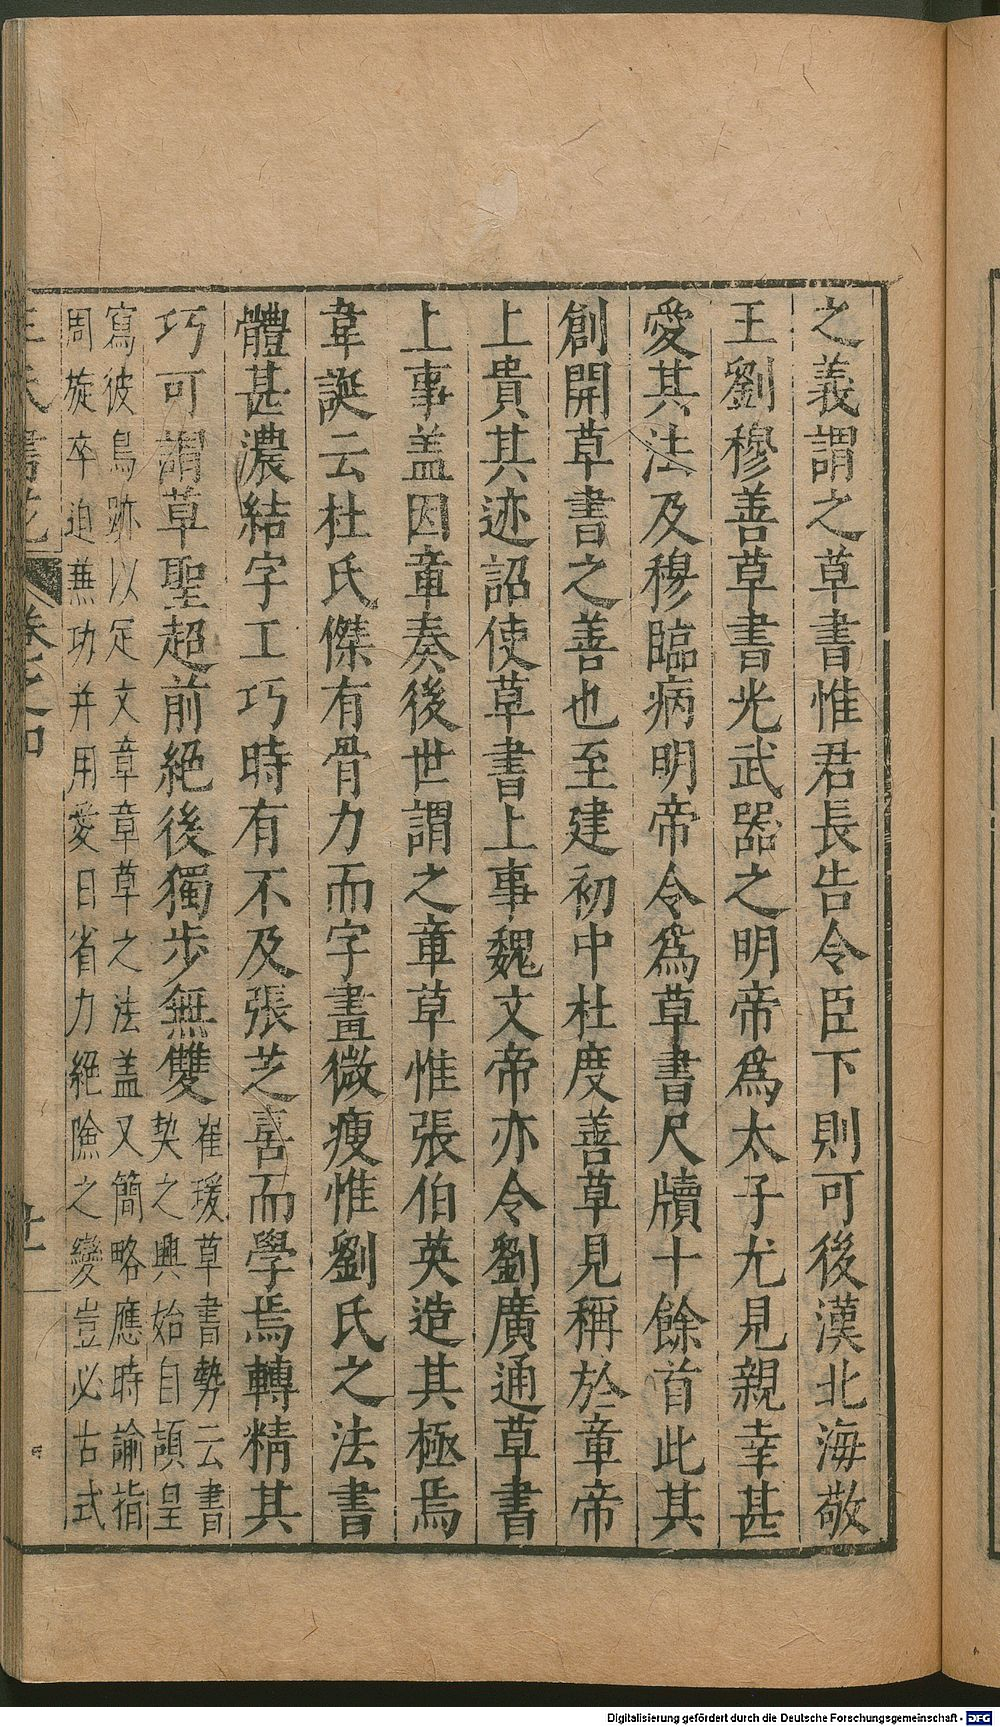 之義謂之草書惟君長告令臣下則可後漢北海敬
王劉穆善草書光武器之明帝爲太子尤見親幸甚
愛其法及穆臨病明帝令爲草書尺牘十餘首此其
創開草書之善也至建初中杜度善草見稱於章帝
上貴其迹詔使草書上事魏文帝亦令劉廣通草書
上事盖因章奏後世謂之章草惟張伯英造其極焉
韋誕云杜氏傑有骨力而字畫微瘦惟劉氏之法書
體甚濃結字工巧時有不及張芝喜而學焉轉精其
巧可謂草聖超前絕後獨步無雙
崔瑗草書勢云書
契之興始自頡皇
寫彼鳥跡以定文章章草之法盖又簡略應時諭指
周旋卒迫蕪功并用愛日省力絕險之變豈必古式
王氏書苑 卷之四
廿
Digitalisierung gefördert durch die Deutsche Forschungsgemeinschaft - DFG